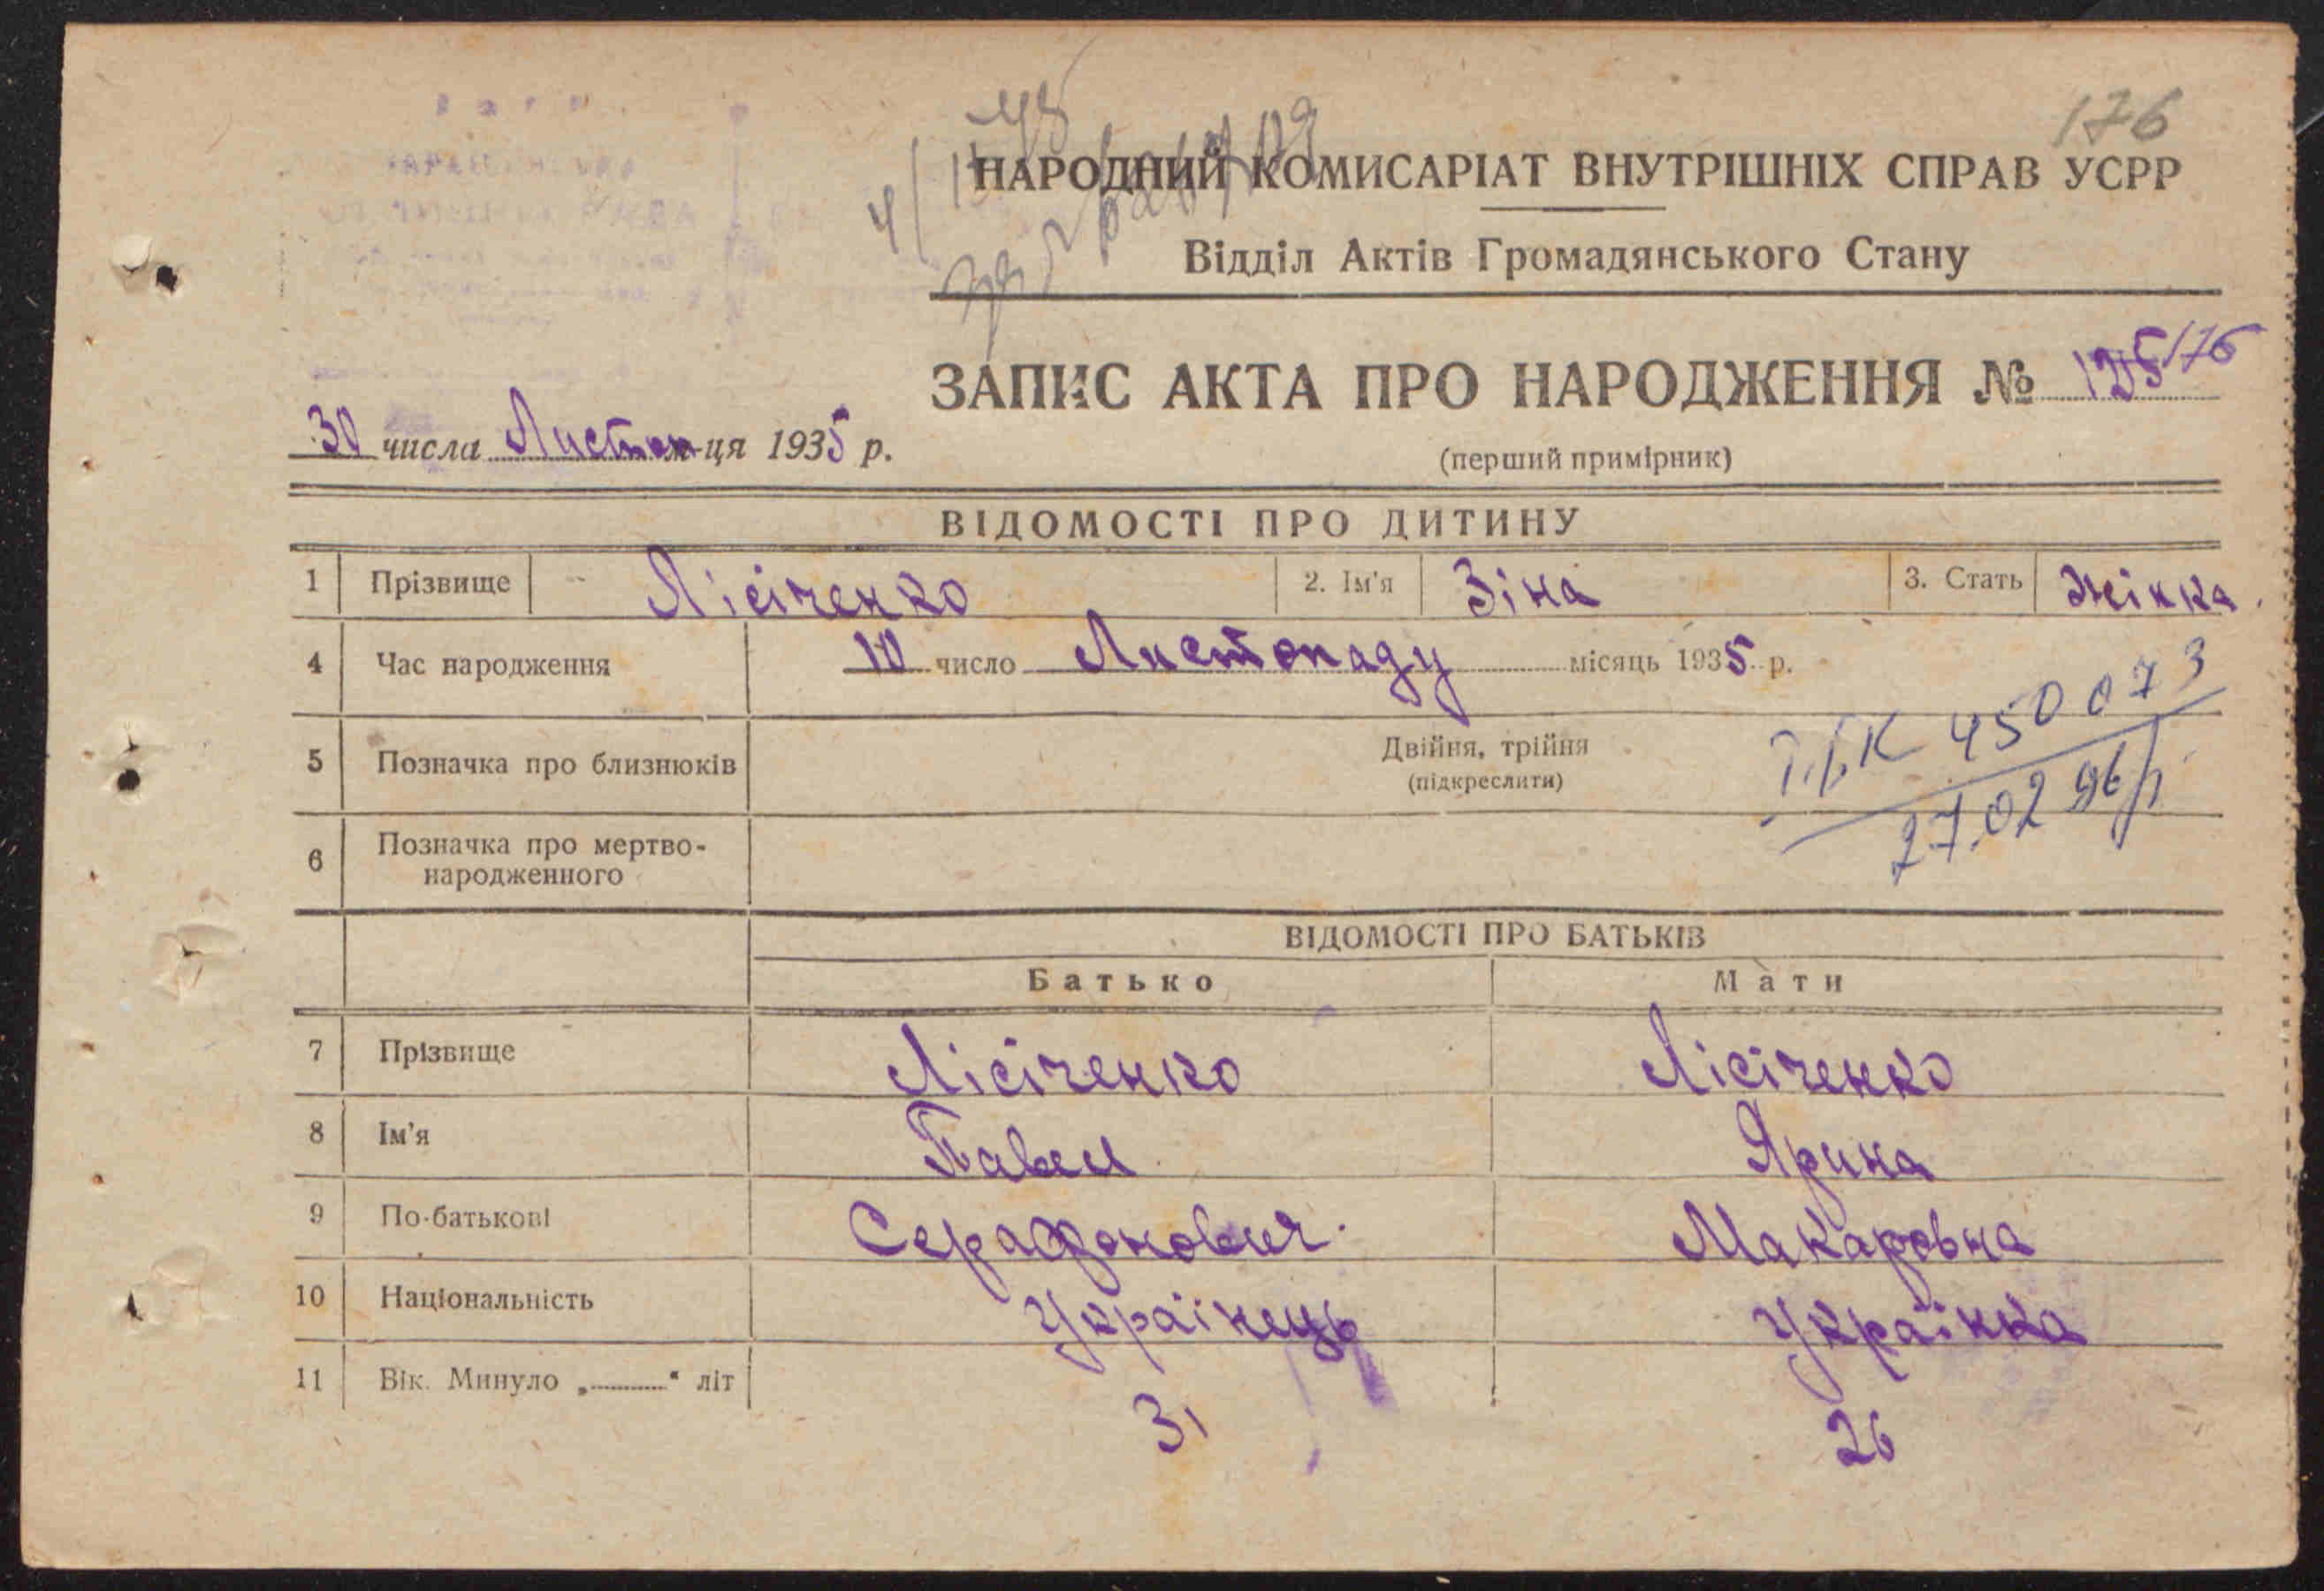 176
НАРОДНИЙ КОМИСАРІАТ ВНУТРІШНІХ СПРАВ УСРР
Відділ Актів Громадянського Стану
ЗАПИС АКТА ПРО НАРОДЖЕННЯ №
30 числа Листоп м-ця 1935 р.
(перший примірник)
ВІДОМОСТІ ПРО ДИТИНУ
1 Прізвище Лісіченко 2. Ім'я Зіна 3. Стать Жінка
4 Час народження 10 число Листопаду місяць 1935 р.
450073
5 Позначка про близнюків Двійня, трійня
(підкреслити)
27.02 96р
6 Позначка про мертво-
народженного
ВІДОМОСТІ ПРО БАТЬКІВ
Батько Мати
7 Прізвище Лісіченко Лісіченко
8 Ім'я Павел Ярина
9 По-батькові Серафонович Макаровна
10 Національність Українець Українка
11 Вік. Минуло „ “ літ 31 26